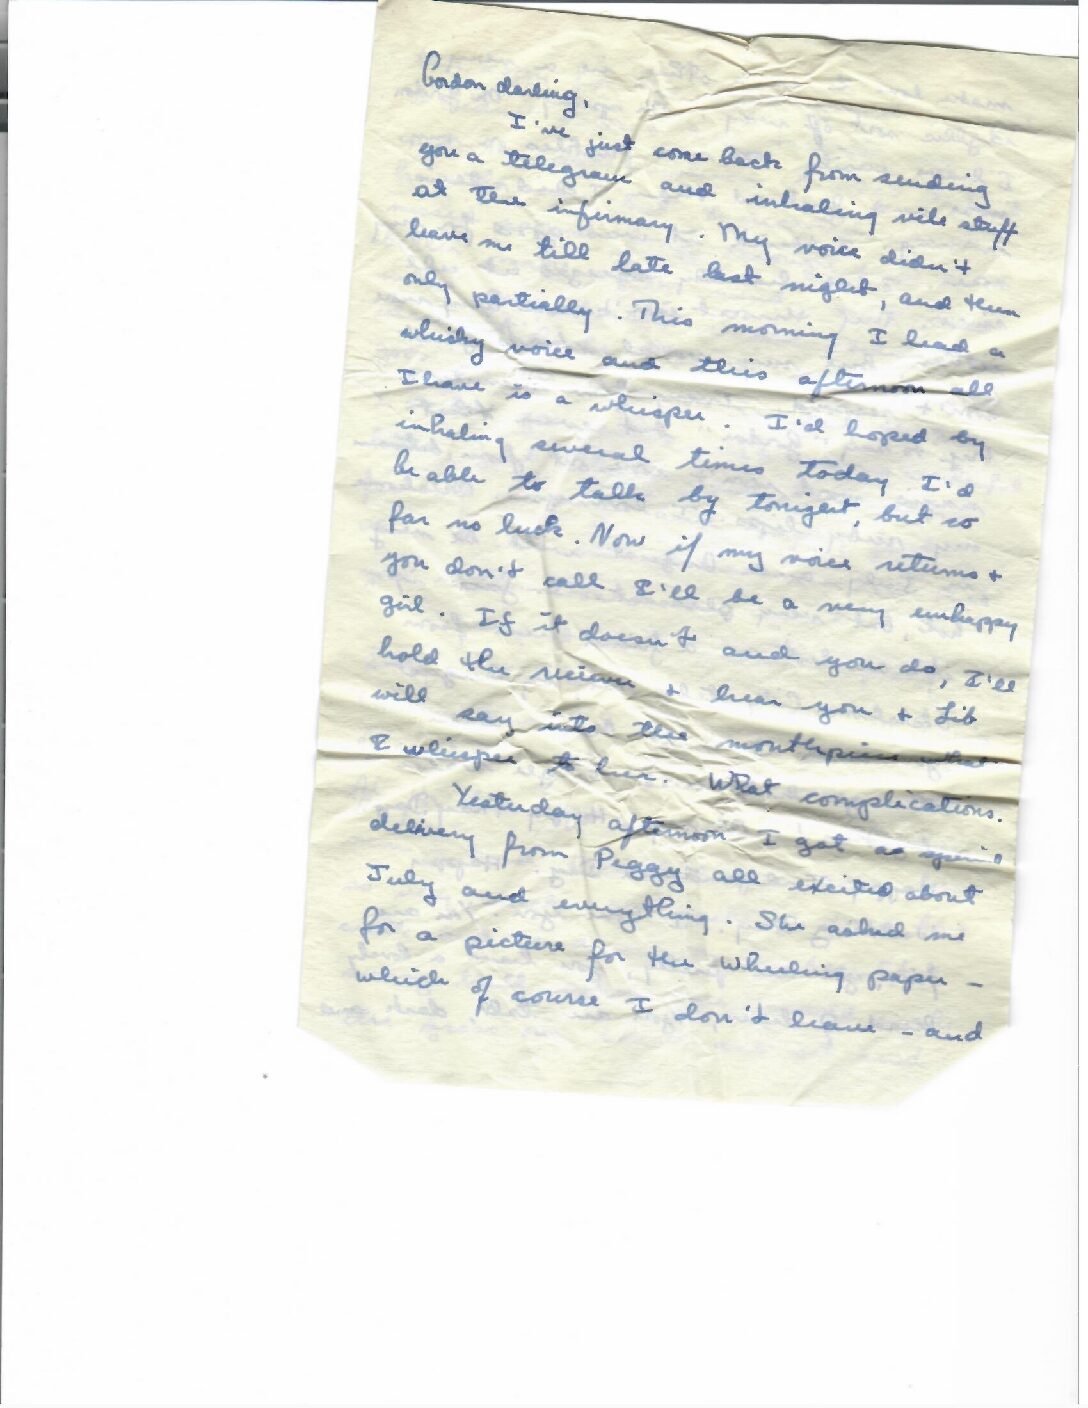 Gordon darling,
I've just come back from sending
you a telegram and inhaling vile stuff
at the infirmary. My voice didn't
leave me till late last night, and then
only partially. This morning I had a
whisky voice and this afternoon all
I have is a whisper. I'd hoped by
inhaling several times today I'd
be able to talk by tonight, but so
far no luck. Now if my voice returns +
you don't call I'll be a very unhappy
girl. If it doesn't and you do, I'll
hold the receiver + hear you + Lib
will say into the mouthpiece what
I whisper to her. What complications.
Yesterday afternoon I got a
delivery from Peggy all excited about
July and everything. She asked me
for a picture for the Wheeling paper –
which of course I don't have – and